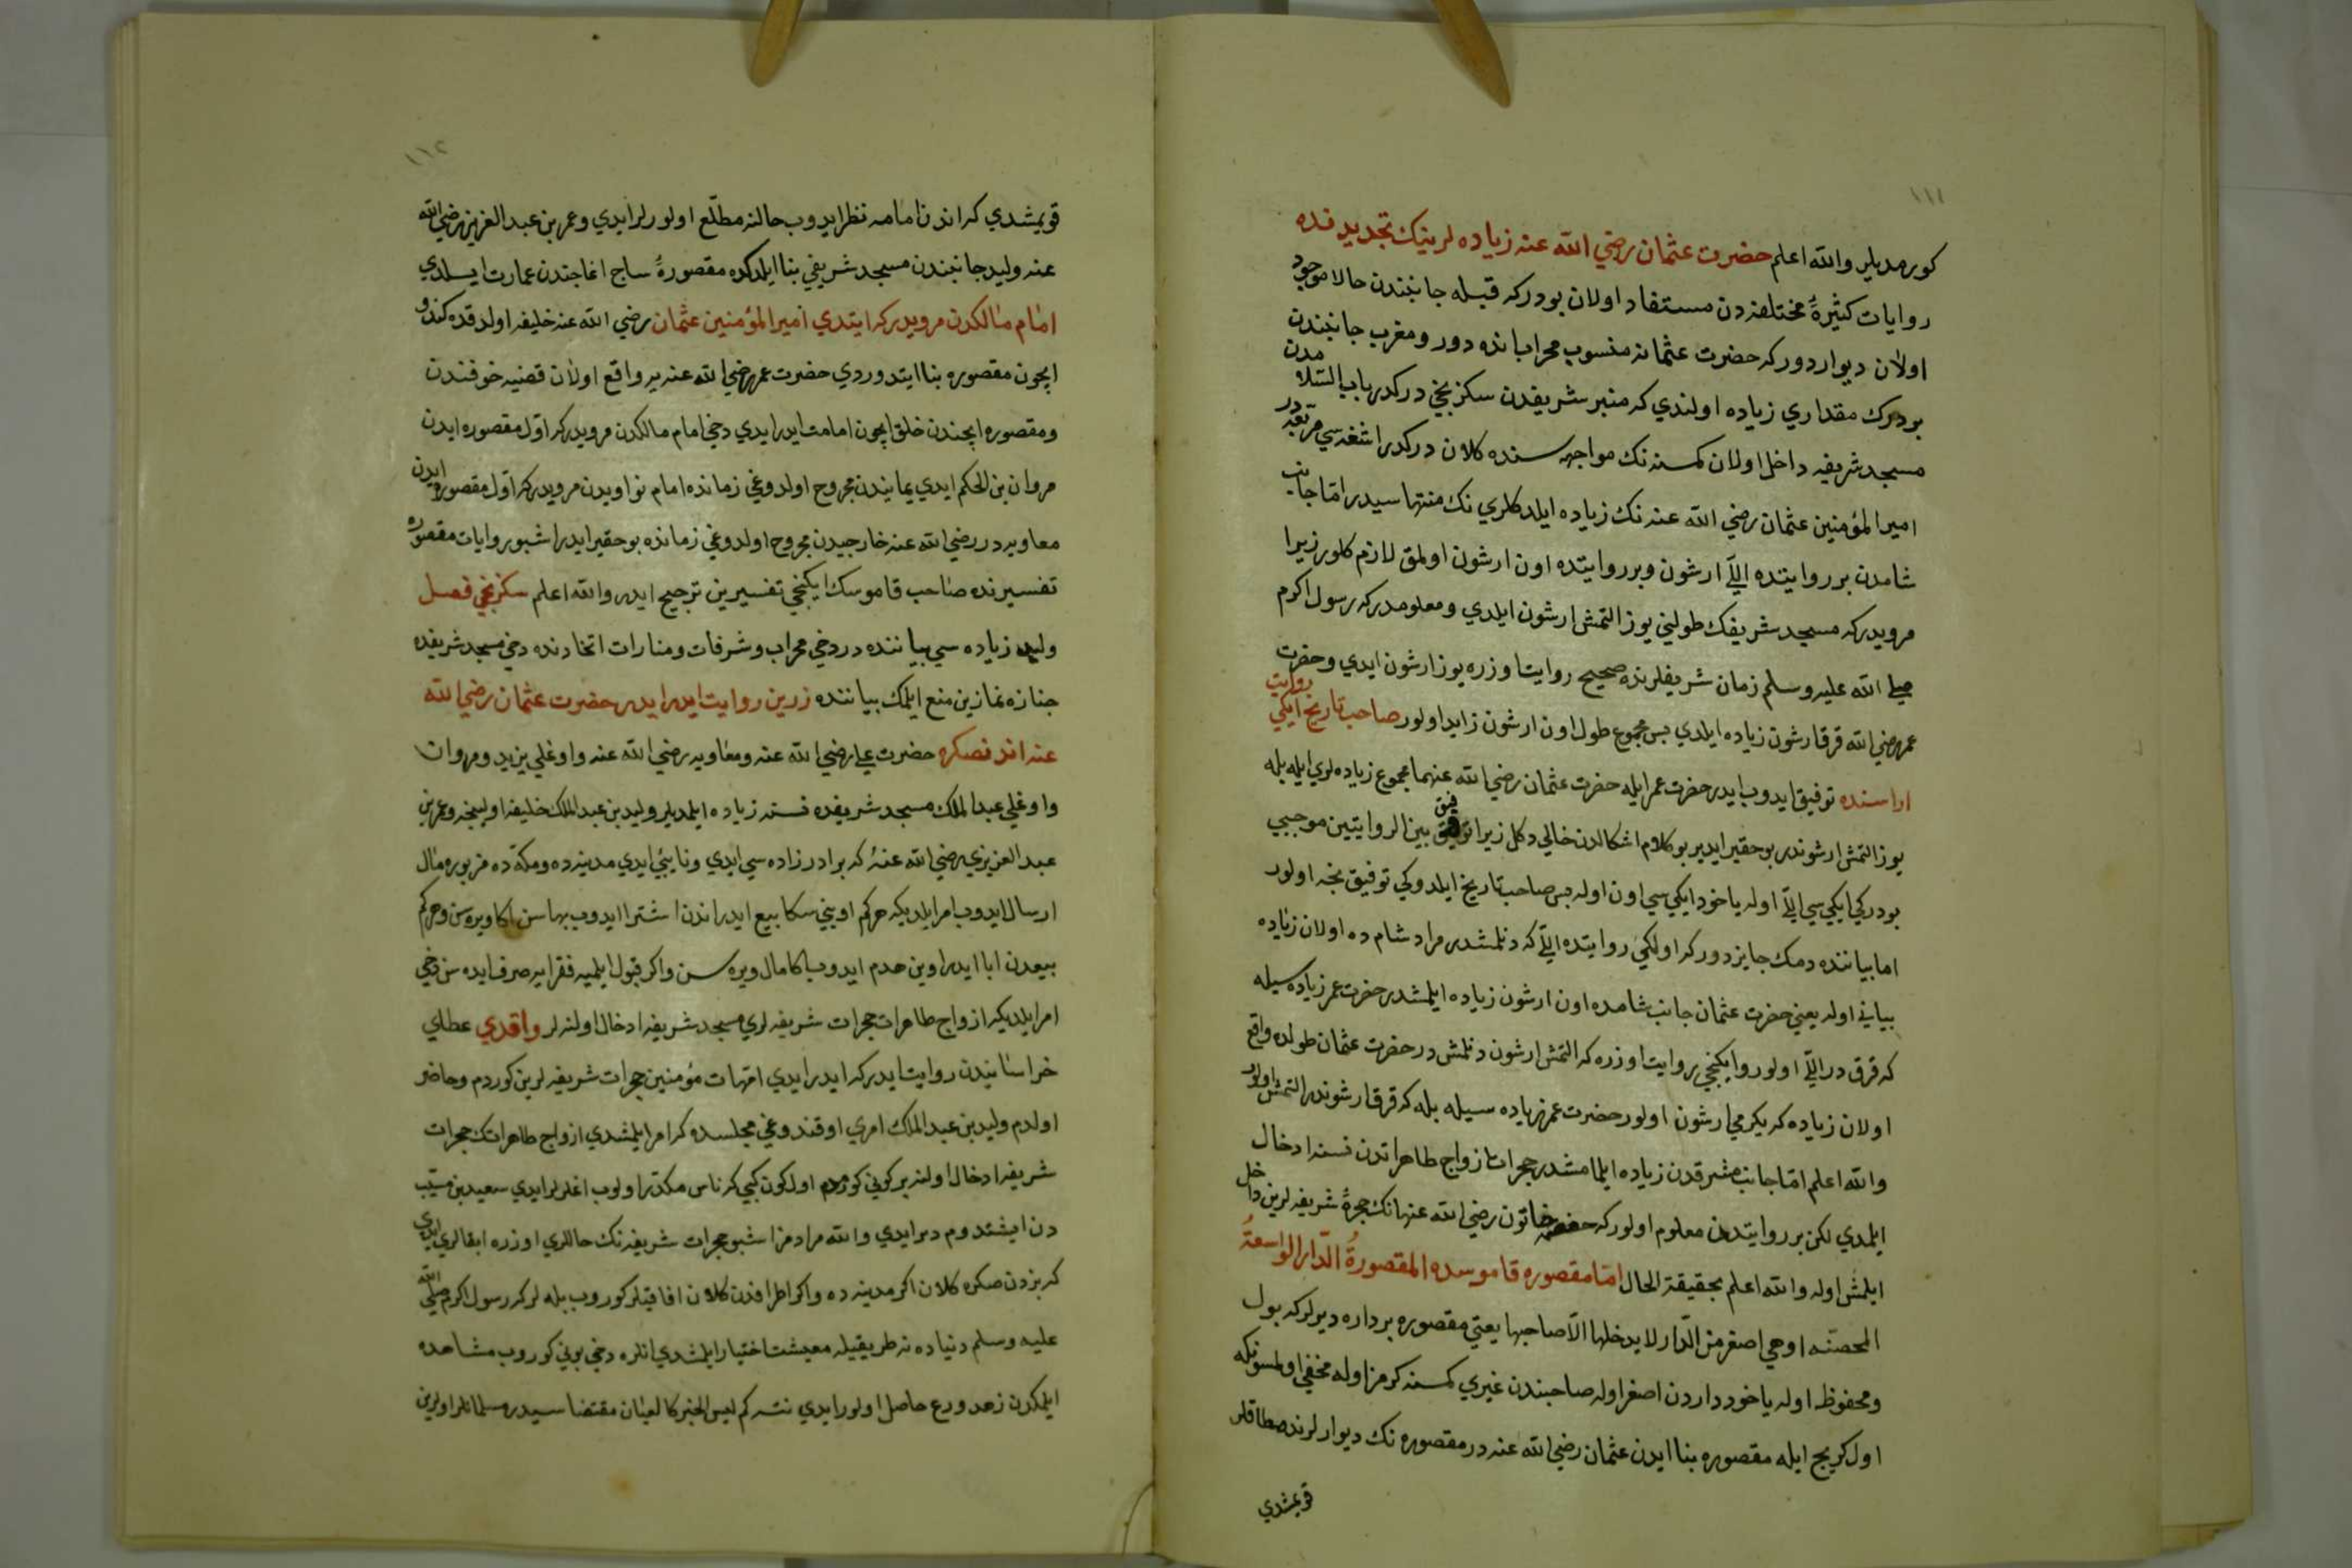 ١١١
كورمديلر والله اعلم حضرت عثمان رضي الله عنه زياده لرينيك تجديدنده
روايات كثيرۀ مختلفه دن مستفاد اولان بودركه قبله جانبندن حالا موجود
اولان ديواردوركه حضرت عثمانه منسوب محرابانده دور ومغرب جانبندن
بودرك مقداري زياده اولندي كه منبر شريفدن سكزنجي دركدر باب السلامدن
مسجد شريفه داخل اولان كمسنه نك مواجهه سنده كلان دركدر اشغه سي مربعدر
امير المؤمنين عثمان رضي الله عنه نك زياده ايلدكلري نك منتهاسيدر اما جانب
شامدن بر روايتده اللّي ارشون وبر روايتده اون ارشون اولمق لازم كلور زيرا
مرويدركه مسجد شريفك طولني يوز التمش ارشون ايلدي ومعلومدركه رسول اكرم
صلى الله عليه وسلم زمان شريفلرنده صحيح روايت اوزره يوز ارشون ايدي وحضرت
عمر رضي الله قرق ارشون زياده ايلدي پس مجموع طول اون ارشون زايد اولور صاحب تاريخ ايكي روايت
اراسنده توفيق ايدوب ايدر حضرت عمر ايله حضرت عثمان رضي الله عنهما مجموع زياده لري ايله بله
يوز التمش ارشوندر بو حقير ايدير بو كلام اشكالدن خالي دكل زيرا توفيق بين الروايتين موجبي
بودركي ايكي سي اللّي اوله يا خود ايكي سي اون اوله پس صاحب تاريخ ايلدوكي توفيق نجه اولور
اما بياننده دمك جايزدوركه اولكي روايتده اللّي كه دنلمشدر مراد شام ده اولان زياده
بياني اوله يعني حضرت عثمان جانب شامده اون ارشون زياده ايلمشدر حضرت عمر زياده سيله
كه قرق در اللّي اولور وايكنجي روايت اوزره كه التمش ارشون دنلمش در حضرت عثمان طولده واقع
اولان زياده كه يكرمي ارشون اولور حضرت عمر زياده سيله بله كه قرق ارشوندر التمش اولور
والله اعلم امّا جانب مشرقدن زياده ايلمامشدر حجرات ازواج طاهراتدن نسنه ادخال
ايلمدي لكن بر روايتدن معلوم اولوركه حفصه خاتون رضي الله عنها نك حجرۀ شريفه لرين داخل
ايلمش اوله والله اعلم بحقيقة الحال امّا مقصوره قاموسده المقصورةُ الدّار الواسعةُ
المحصّنه او هي اصغر من الدّار لا يدخلها الاّ صاحبها يعني مقصوره برداره ديرلر كه بول
ومحفوظ اوله يا خود داردن اصغر اوله صاحبندن غيري كمسنه كرمز اوله مخفي اولمسونكه
اول كربج ايله مقصوره بنا ايدن عثمان رضي الله عنه در مقصوره نك ديوارلرنده طاقلر
قويمشدي
١١٢
قويمشدي كه اندن امامه نظر ايدوب حالنه مطلّع اولورلرايدي وعمر بن عبد العزيز رضي الله
عنه وليد جانبندن مسجد شريفي بنا ايلدكده مقصورۀ ساج اغاجندن عمارت ايسلدي
امام مالكدن مرويدركه ايتدي امير المؤمنين عثمان رضي الله عنه خليفه اولدقده كندو
ايچون مقصوره بنا ايتدوردي حضرت عمر رضي الله عنه يه واقع اولان قضيه خوفندن
ومقصوره ايچندن خلق ايچون امامت ايدرايدي دخي امام مالكدن مرويدركه اوّل مقصوره ايدن
مروان بن الحكم ايدي يمانيدن مجروح اولدوغي زمانده امام نواويدن مرويدركه اوّل مقصوره ايدن
معاويه در رضي الله عنه خارجيدن مجروح اولدوغي زمانده بو حقير ايدر اشبو روايات مقصوره
تفسيرنده صاحب قاموسك ايكنجي تفسيرين ترجيح ايدر والله اعلم سكزنجي فصل
وليد زياده سي بياننده در دخي محراب وشرفات ومنارات اتخاذنده دخي مسجد شريفده
جنازه نمازين منع ايلمك بياننده زرين روايت ايدر ايدر حضرت عثمان رضي الله
عنه اندنصكره حضرت علي رضي الله عنه ومعاويه رضي الله عنه واوغلي يزيد ومروان
واوغلي عبد الملك مسجد شريفده نسنه زياده ايلمديلر وليد بن عبد الملك خليفه اولیجق وعمر بن
عبد العزيزي رضي الله عنهُ كه برادرزاده سي ايدي ونايبئ ايدي مدينه ده ومكّه ده مزبوره مال
ارسال ايدوب امر ايلديكه هركم اويني سكا بيع ايدر اندن اشترا ايدوب بهاسن اكا ويره سن وهركم
بيعدن ابا ايدر اوين هدم ايدوب اكا مال ويره سن واكر قبول ايلميه فقرايه صرف ايده سن دخي
امر ايلديكه ازواج طاهرات حجرات شريفه لري مسجد شريفه ادخال اولنه لر واقدي عطاي
خراسانيدن روايت ايدركه ايدرايدي امّهات مؤمنين حجرات شريفه لرين كوردم وحاضر
اولدم وليد بن عبد الملك امري اوقندوغي مجلسده كه امر ايلمشدي ازواج طاهراتك حجرات
شريفه ادخال اولنه بر كوني كورمدم اول كون كبي كه ناس مكدّر اولوب اغلرلرايدي سعيد بن مسيّب
دن ايشتدوم ديرايدي والله مرادمز اشبو حجرات شريفه نك حاللري اوزره ابقالري ايدي
كه بزدن صكره كلان اكر مدينه ده واكر اطرافدن كلان افاقيلر كوروب بيله لركه رسول اكرم صلى الله
عليه وسلم دنياده نه طريقيله معيشت اختيار ايلمشدي انلره دخي بوني كوروب مشاهده
ايلمكدن زهد وورع حاصل اولورايدي نته كم ليس الخبر كالعيان مقتضاسيدر مسلمانلر اولرين